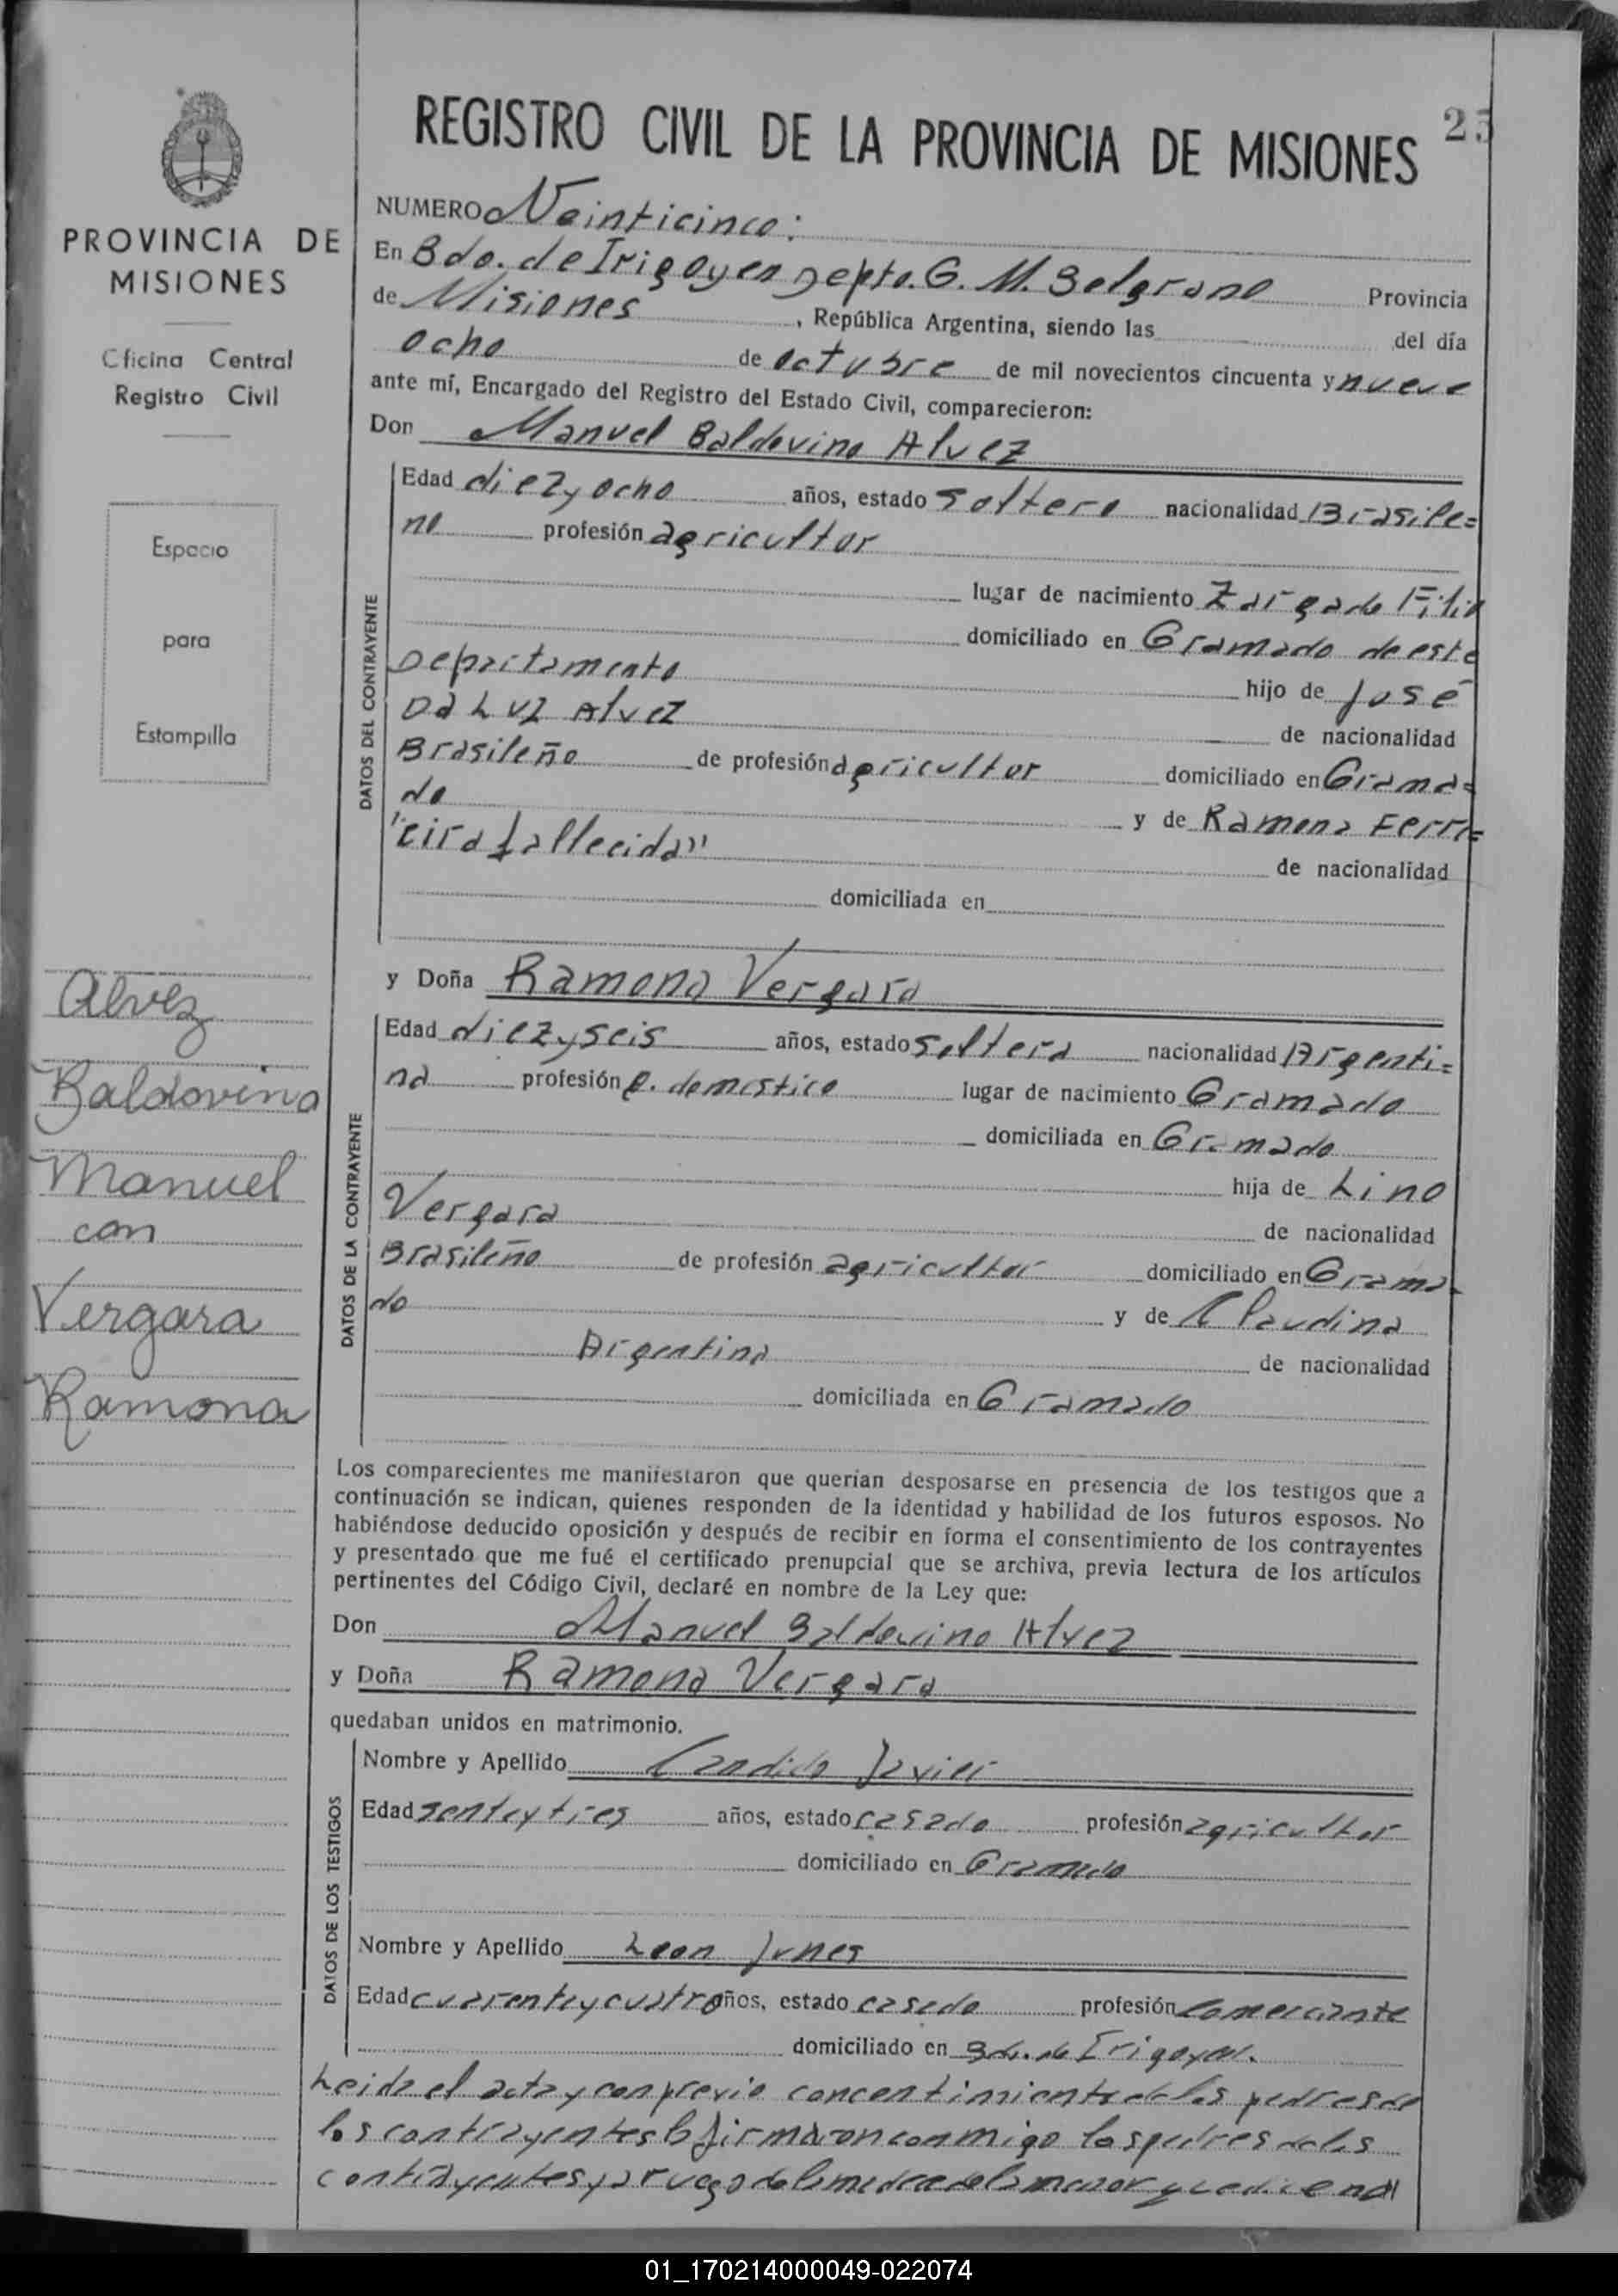 REGISTRO CIVIL DE LA PROVINCIA DE MISIONES
25
PROVINCIA DE
MISIONES
Oficina Central
Registro Civil
Espacio
para
Estampilla
Alvez
Baldovino
Manuel
con
Vergara
Ramona
NUMERO Veinticinco:
En Bdo. de Irigoyen Depto. G. M. Belgrano Provincia
de Misiones, República Argentina, siendo las del día
ocho de octubre de mil novecientos cincuenta y nueve
ante mí, Encargado del Registro del Estado Civil, comparecieron:
Don Manuel Baldovino Alvez
DATOS DEL CONTRAYENTE
Edad diez y ocho años, estado soltero nacionalidad Brasile=
no profesión agricultor
lugar de nacimiento
domiciliado en Gramado de este
Departamento hijo de José
Da Luz Alvez de nacionalidad
Brasileño de profesión agricultor domiciliado en Grama=
do y de Ramona Ferre=
"eira fallecida" de nacionalidad
domiciliada en
y Doña Ramona Vergara
DATOS DE LA CONTRAYENTE
Edad diez y seis años, estado soltera nacionalidad Argenti=
na profesión q. domestico lugar de nacimiento Gramado
domiciliada en Gramado
hija de Lino
Vergara de nacionalidad
Brasileño de profesión agricultor domiciliado en Grama-
do y de Claudina
Argentina de nacionalidad
domiciliada en Gramado
Los comparecientes me manifestaron que querían desposarse en presencia de los testigos que a
continuación se indican, quienes responden de la identidad y habilidad de los futuros esposos. No
habiéndose deducido oposición y después de recibir en forma el consentimiento de los contrayentes
y presentado que me fué el certificado prenupcial que se archiva, previa lectura de los artículos
pertinentes del Código Civil, declaré en nombre de la Ley que:
Don Manuel Baldovino Alvez
y Doña Ramona Vergara
quedaban unidos en matrimonio.
DATOS DE LOS TESTIGOS
Nombre y Apellido Candido Javier
Edad años, estado casado profesión agricultor
domiciliado en Gramado
Nombre y Apellido Leon Junes
Edad cuarenta y cuatro años, estado casado profesión Comerciante
domiciliado en Bdo. de Irigoyen.
Leida el acta y con previo concentimiento de los padres de
los contrayentes la firmaron conmigo los padres de los
contrayentes y a ruego de la madre de la menor
01_170214000049-022074